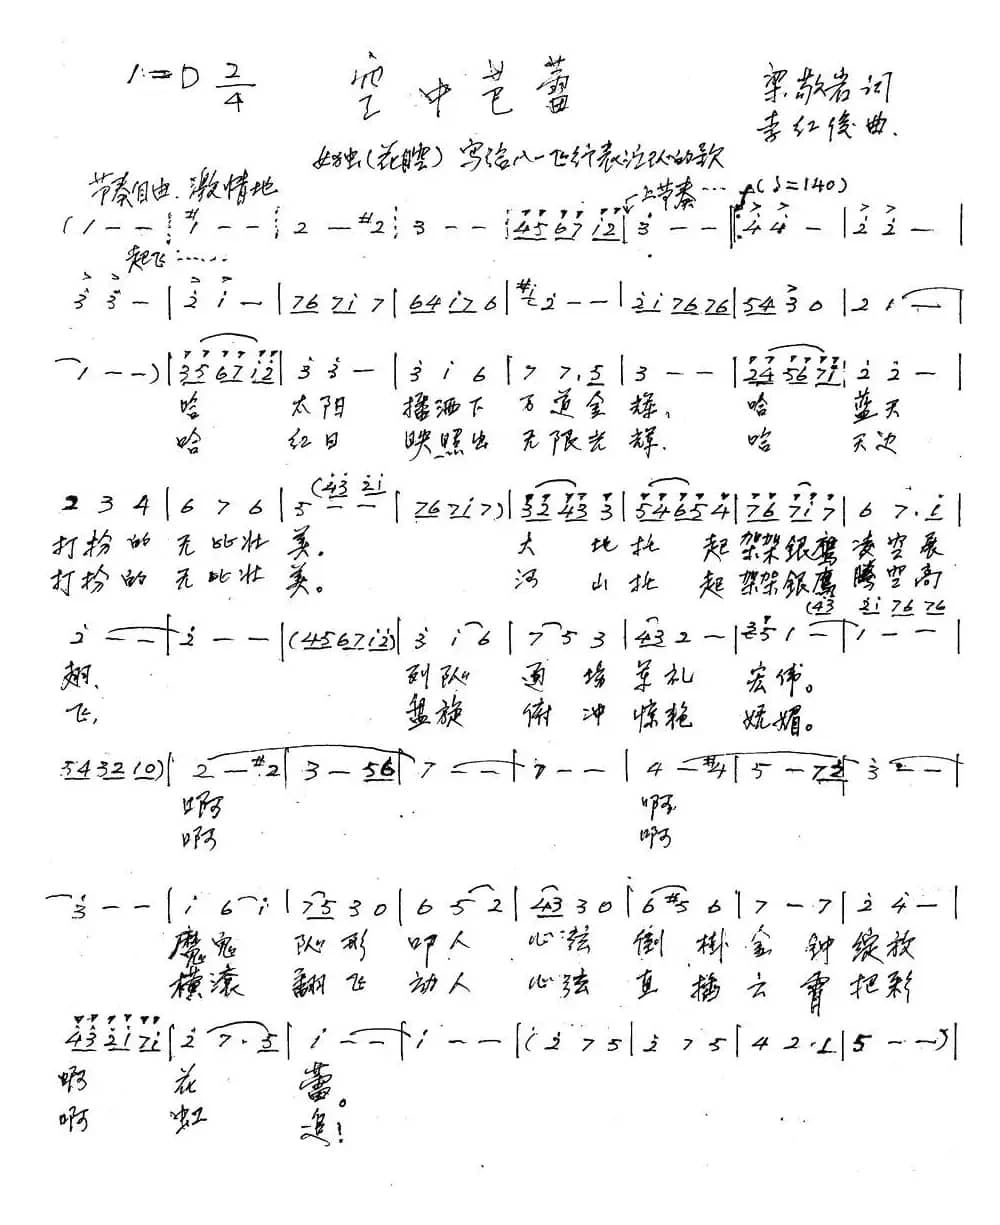 1=D 2/4 空中芭蕾 梁敬岩词
李红俊曲.
女独(花腔) 写给八一飞行表演队的歌
节奏自由.激情地 上节奏… f(♩=140)
(1 - - | #1 - - | 2 - #2 | 3 - - | 45 67 12 | 3 - - |: 4 4 - | 2 2 - |
起飞……
3 3 - | 2 1 - | 76 71 7 | 64 17 6 | #1 2 - - | 21 76 76 | 54 3 0 | 2 1 - |
1 - -) | 35 67 12 | 3 3 - | 3 1 6 | 7 7. 5 | 3 - - | 24 56 71 | 2 2 - |
哈 太阳 播洒下 万道金辉、 哈 蓝天
哈 红日 映照出 无限光辉. 哈 天边
(43 21
2 3 4 | 6 7 6 | 5 - - | 76 71 7) | 32 43 3 | 54 65 4 | 76 71 7 | 6 7. 1 |
打扮的 无比壮 美。 大地托起架架银鹰凌空展
打扮的 无比壮 美。 河山托起架架银鹰腾空高
(43 21 76 76
2 - - | 2 - - | (45 67 12) | 3 1 6 | 7 5 3 | 43 2 - | 35 1 - | 1 - - |
翅、 列队 通场 军礼 宏伟。
飞, 盘旋 俯冲 惊艳 妩媚。
54 32 10) | 2 - #2 | 3 - 56 | 7 - - | 7 - - | 4 - #4 | 5 - 72 | 3 2 - |
啊 啊
啊 啊
3 - - | 1 6 1 | 75 3 0 | 6 5 2 | 43 3 0 | 6 #5 6 | 7 - 7 | 2 4 - |
魔鬼 队形 叩人 心弦 倒掛金钟绽放
横滚 翻飞 动人 心弦 直插云霄把彩
43 21 71 | 2 7. 5 | 1 - - | 1 - - | (2 7 5 | 2 7 5 | 4 2. 1 | 5 - -) |
啊 花 蕾。
啊 虹 追!